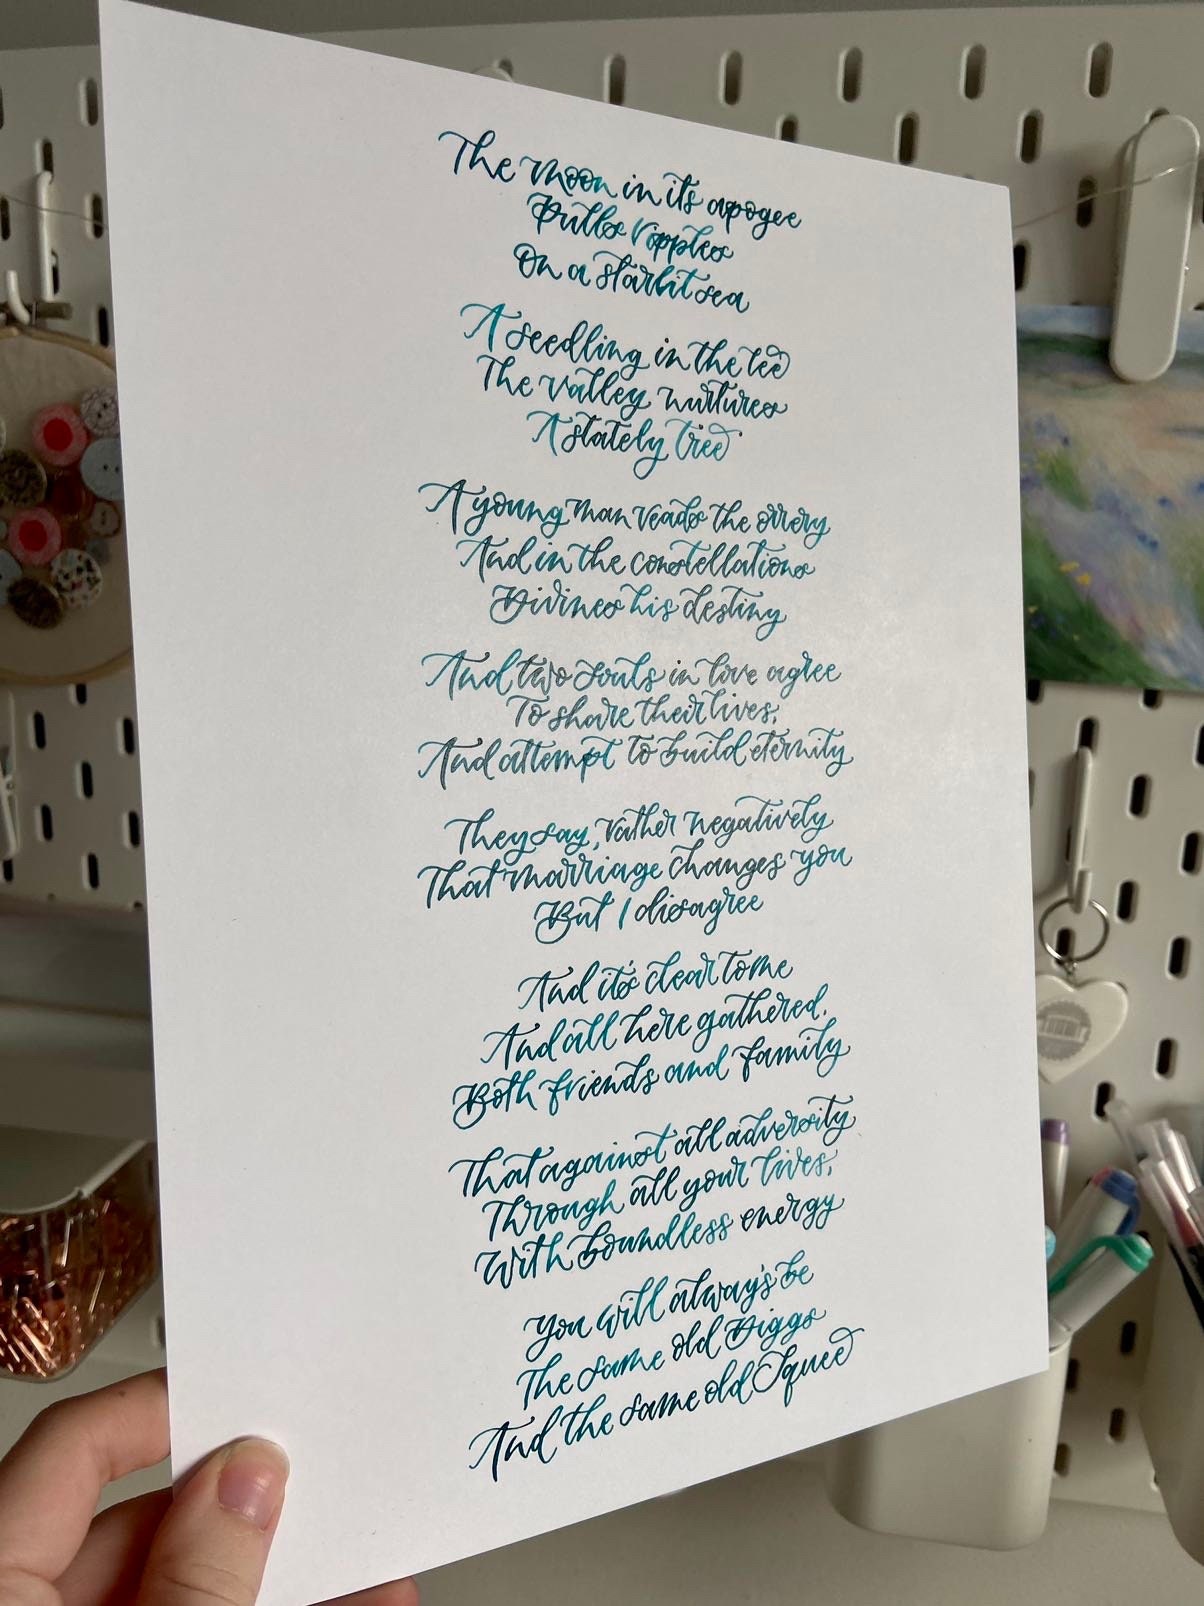 The moon in its apogee
Pulls ripples
On a starlit sea
A seedling in the lee
The valley nurtures
A stately tree
A young man reads the orrery
And in the constellations
Divines his destiny
And two souls in love agree
To share their lives,
And attempt to build eternity
They say, rather negatively
That marriage changes you
But I disagree
And it's clear to me
And all here gathered,
Both friends and family
That against all adversity
Through all your lives,
With boundless energy
You will always be
The same old Diggs
And the same old Squee